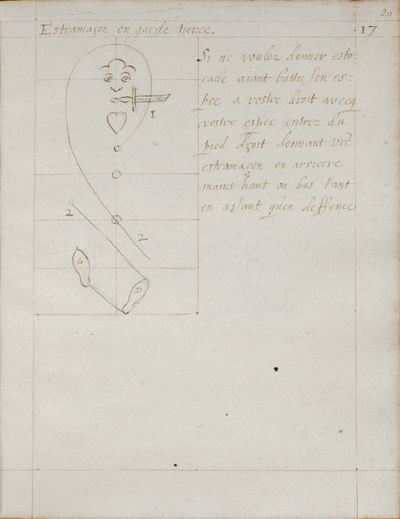 20
Estramaçon en garde tierce.
17
Si ne voulez donner esto-
cade aiant battu son es-
pee a vostre droit avecq
vostre espee entrez du
pied droit donnant vr̄e
estramaçon en arriere
mains haut ou bas tant
en assaut qu'en deffence
1
2
2
G
D